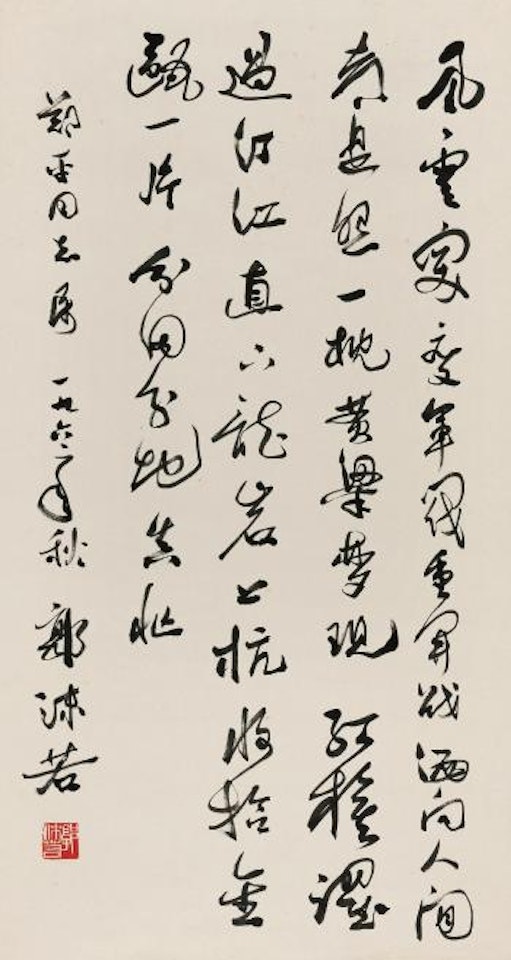 風雲突變軍閥重開戰洒向人間
都是怨一枕黄粱梦現紅旗躍
過汀江直下龍岩上杭收拾金
甌一片分田分地真忙
鄭平同志屬一九六二年秋郭沫若
郭沫若